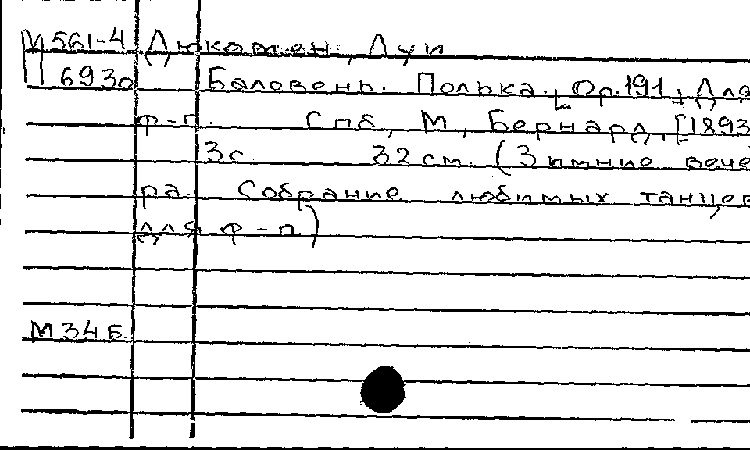 М 561-4 Дюкомен, Луи
6930 Баловень. Полька. Op. 191, Для
ф-п. Спб, М, Бернард, [1893
3с. 32 см. (Зимние вече
ра. Собрание любимых танцев
для ф-п)
М 34 Б